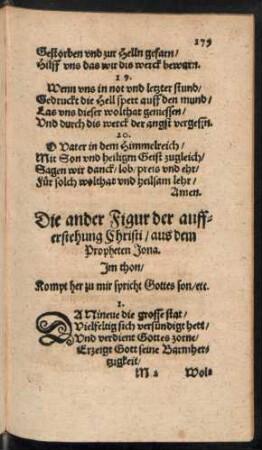 179
Gestorben vnd zur Helln gefarn/
Hilff vns das wir dis werck bewarn.
19.
Wenn vns in not vnd letzter stund/
Gedruckt die Hell spert auff den mund/
Las vns dieser wolthat geniessen/
Vnd durch dis werck der angst vergessn.
20.
O Vater in dem Himmelreich/
Mit Son vnd heiligm Geist zugleich/
Sagen wir danck/ lob/ preis vnd ehr/
Für solch wolthat vnd heilsam lehr/
Amen.
Die ander Figur der auff-
erstehung Christi/ aus dem
Propheten Jona.
Im thon/
Kompt her zu mir spricht Gottes son/etc.
1.
DA Nineue die grosse stat/
Vielfeltig sich versündigt hett/
Vnd verdient Gottes zorne/
Erzeigt Gott seine Barmher-
tzigkeit/
M 2 Wol-